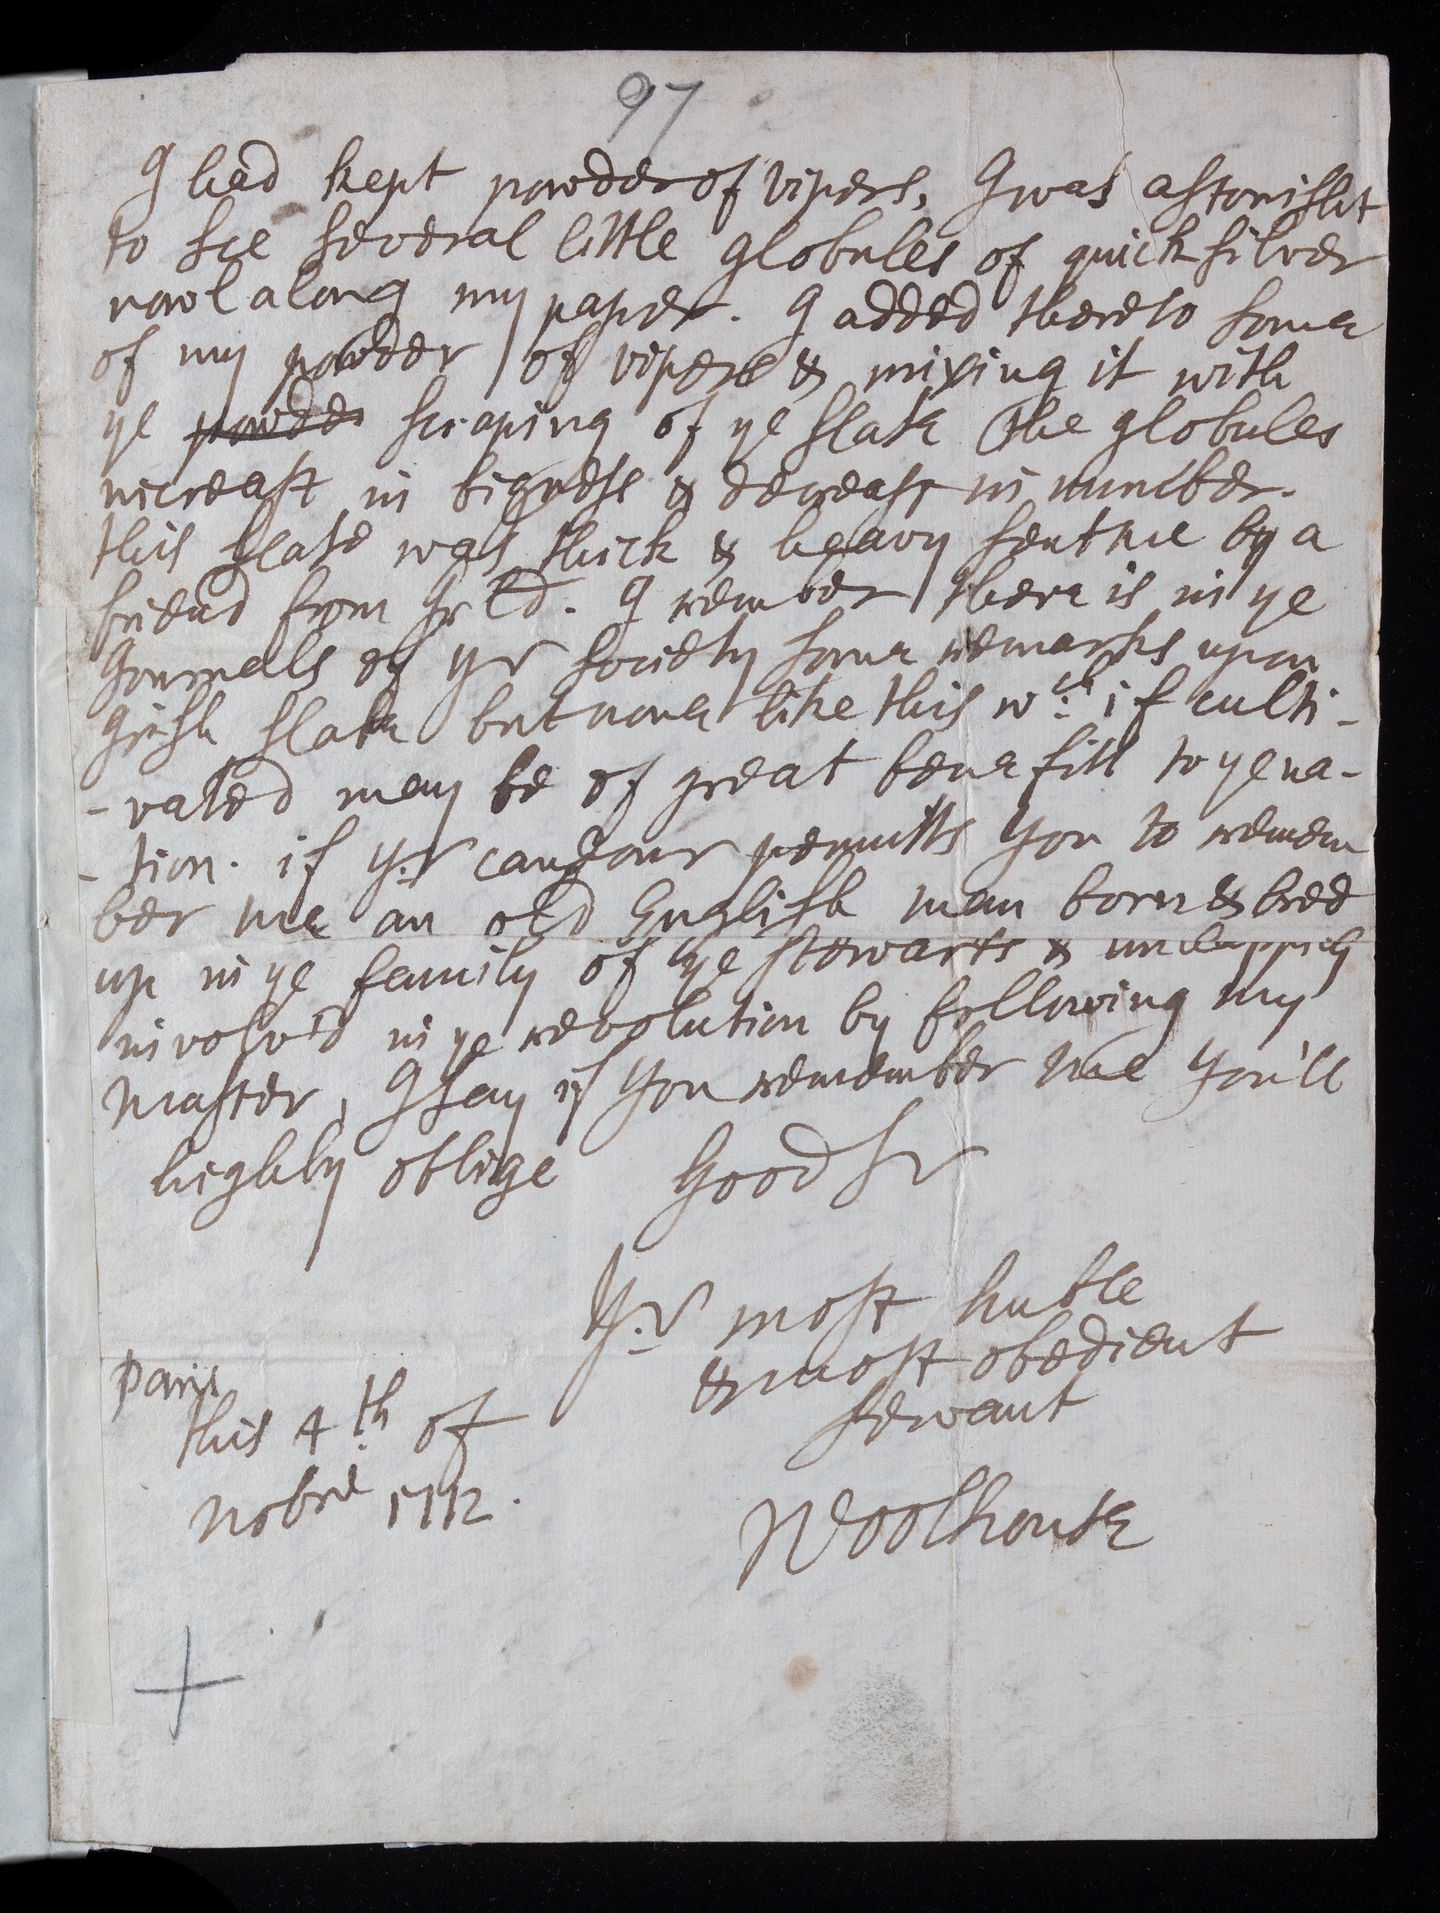 97
I had kept powder of vipers, I was astonisht
to see several little globules of quicksilver
rowl along my paper. I added thereto some
of my powder of vipers & mixing it with
ye powder scraping of ye slate The globules
increast in bigness & decreast in number.
this slate was thick & heavy sent me by a
friend from Irld. I remember there is in ye
Journals of yr society some remarks upon
Irish slate but none like this wch if culti-
-vated may be of great benefitt to ye na-
-tion. if yr candour permitts you to remem
ber me an old English man born & bred
up in ye family of ye stewarts & unhappily
involv'd in ye revolution by following my
Master, I say if you remember me you'll
highly oblige Good Sr
Yr most huble
& most obedient
servant
Paris
this 4th of
Nobre 1712.
Woolhouse